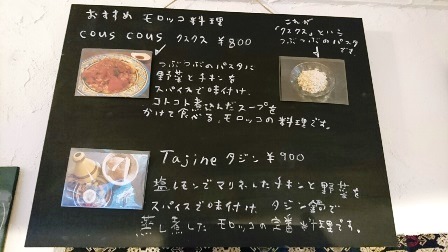 おすすめ モロッコ料理
cous cous クスクス ¥800
これが
「クスクス」という
つぶつぶのパスタ
です
つぶつぶのパスタに
野菜とチキンを
スパイスで味付け、
コトコト煮込んだスープを
かけて食べる、モロッコの料理です。
Tajine タジン ¥900
塩レモンでマリネしたチキンと野菜を
スパイスで味付け、タジン鍋で
蒸し煮した モロッコの定番料理です。